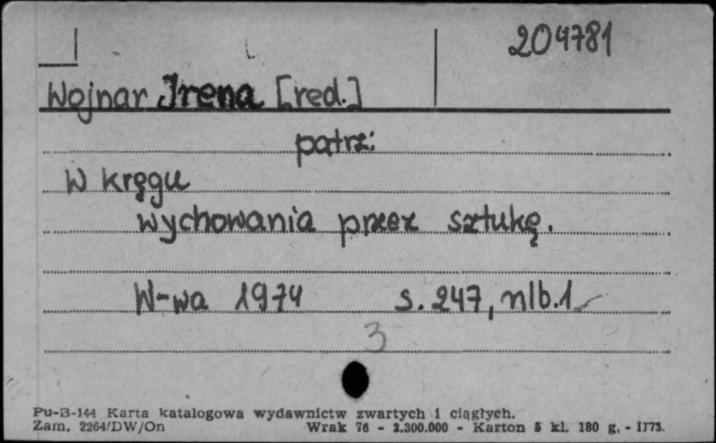 204781
Wojnar Irena [red.]
patrz:
W kręgu
wychowania przez sztukę.
W-wa 1974 s. 247, nlb.1
3
Pu-B-144 Karta katalogowa wydawnictw zwartych i ciągłych.
Zam. 2264/DW/On Wrak 76 - 2.300.000 - Karton 5 kl. 180 g. - II73.